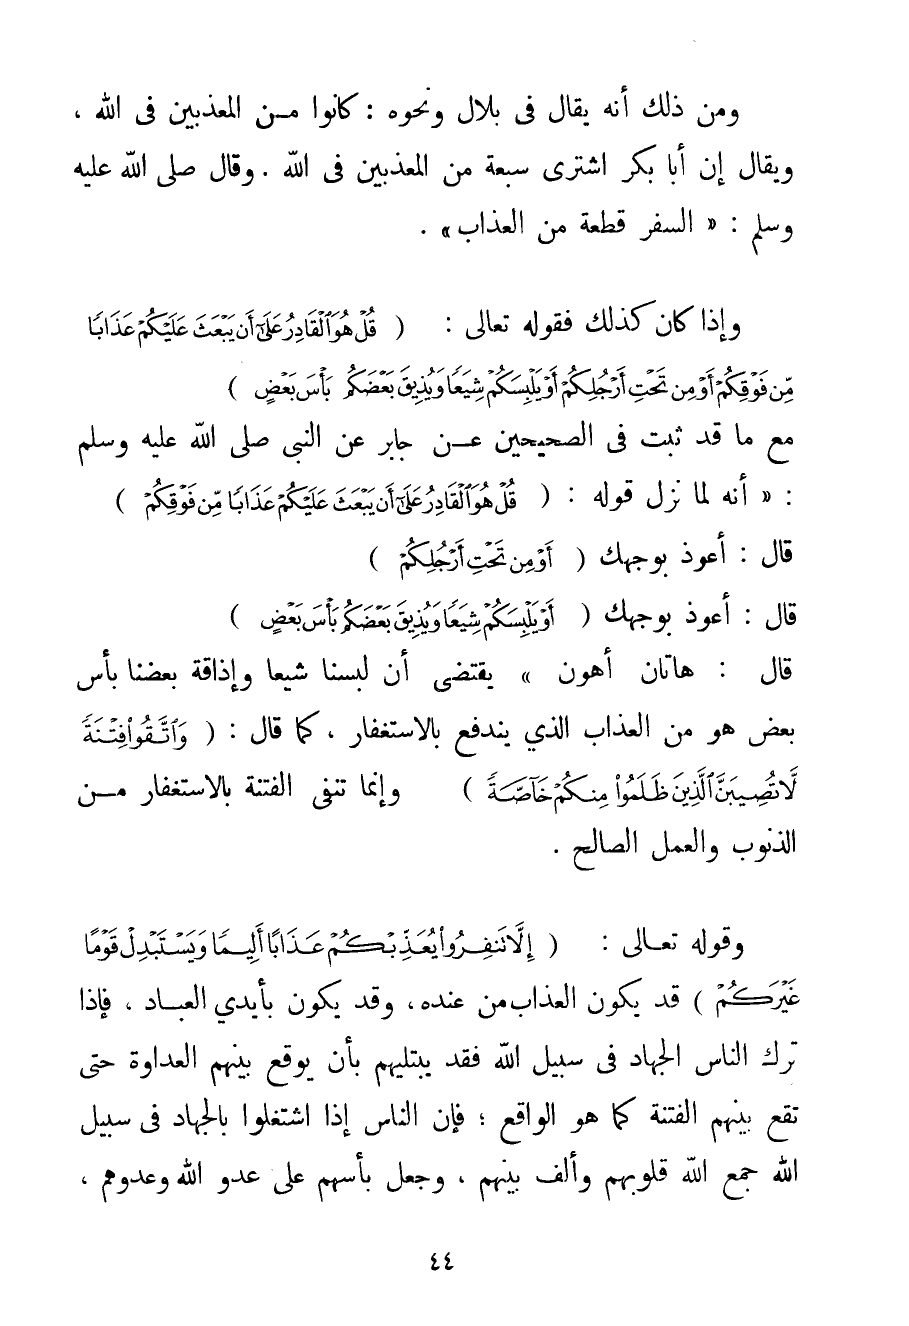 ومن ذلك أنه يقال فى بلال ونحوه : كانوا مـن المعذبين فى الله ،
ويقال إن أبا بكر اشترى سبعة من المعذبين فى الله . وقال صلى الله عليه
وسلم : « السفر قطعة من العذاب » .
وإذا كان كذلك فقوله تعالى : ( قُلْ هُوَ ٱلْقَادِرُ عَلَىٰٓ أَن يَبْعَثَ عَلَيْكُمْ عَذَابًا
مِّن فَوْقِكُمْ أَوْ مِن تَحْتِ أَرْجُلِكُمْ أَوْ يَلْبِسَكُمْ شِيَعًا وَيُذِيقَ بَعْضَكُم بَأْسَ بَعْضٍ )
مع ما قد ثبت فى الصحيحين عـن جابر عن النبي صلى الله عليه وسلم
: « أنه لما نزل قوله : ( قُلْ هُوَ ٱلْقَادِرُ عَلَىٰٓ أَن يَبْعَثَ عَلَيْكُمْ عَذَابًا مِّن فَوْقِكُمْ )
قال : أعوذ بوجهك ( أَوْ مِن تَحْتِ أَرْجُلِكُمْ )
قال : أعوذ بوجهك ( أَوْ يَلْبِسَكُمْ شِيَعًا وَيُذِيقَ بَعْضَكُم بَأْسَ بَعْضٍ )
قال : هاتان أهون » يقتضى أن لبسنا شيعا وإذاقة بعضنا بأس
بعض هو من العذاب الذي يندفع بالاستغفار ، كما قال : ( وَٱتَّقُوا۟ فِتْنَةً
لَّا تُصِيبَنَّ ٱلَّذِينَ ظَلَمُوا۟ مِنكُمْ خَآصَّةً ) وإنما تنفى الفتنة بالاستغفار مـن
الذنوب والعمل الصالح .
وقوله تعـالى : ( إِلَّا تَنفِرُوا۟ يُعَذِّبْكُمْ عَذَابًا أَلِيمًا وَيَسْتَبْدِلْ قَوْمًا
غَيْرَكُمْ ) قد يكون العذاب من عنده ، وقد يكون بأيدي العبـاد ، فإذا
ترك الناس الجهاد فى سبيل الله فقد يبتليهم بأن يوقع بينهم العداوة حتى
تقع بينهم الفتنة كما هو الواقع ؛ فإن الناس إذا اشتغلوا بالجهاد فى سبيل
الله جمع الله قلوبهم وألف بينهم ، وجعل بأسهم على عدو الله وعدوهم ،
٤٤